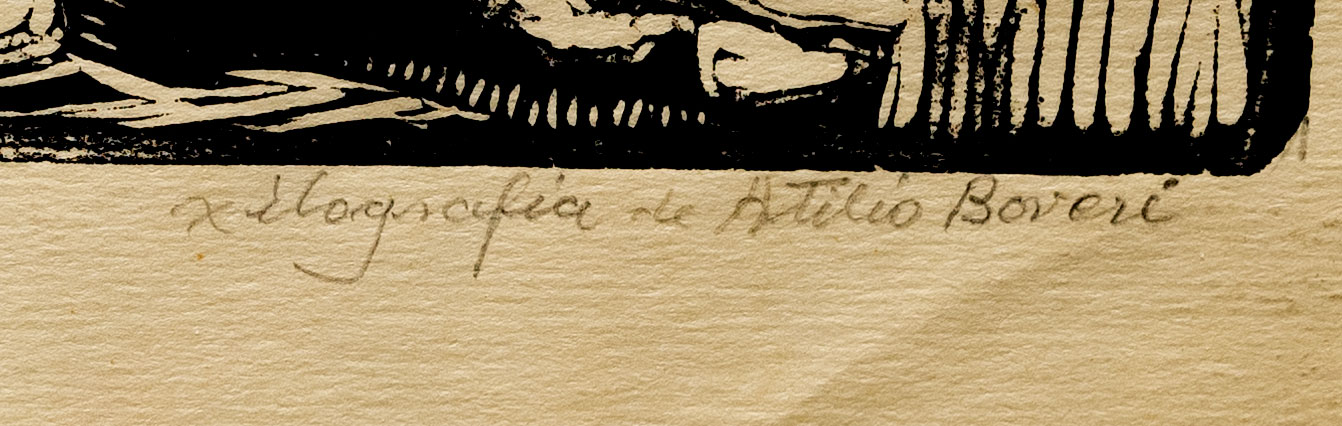 xilografía de Atilio Boveri